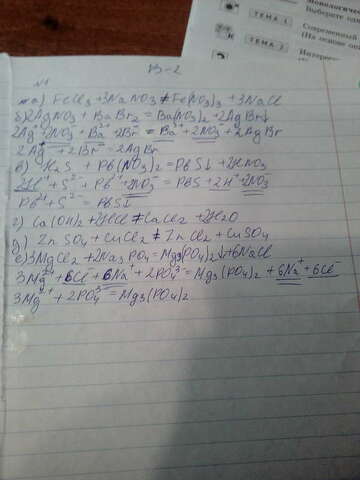 Монологическо
Выберите одн
ТЕМА 1
Современный
(На основе об
ТЕМА 2
Интересн
В-2
№1
а) FeCl3 + 3NaNO3 ≠ Fe(NO3)3 + 3NaCl
б) 2AgNO3 + BaBr2 = Ba(NO3)2 + 2AgBr↓
2Ag⁺ + 2NO3⁻ + Ba²⁺ + 2Br⁻ = Ba²⁺ + 2NO3⁻ + 2AgBr
2Ag⁺ + 2Br⁻ = 2AgBr
в) H2S + Pb(NO3)2 = PbS↓ + 2HNO3
2H⁺ + S²⁻ + Pb²⁺ + 2NO3⁻ = PbS + 2H⁺ + 2NO3⁻
Pb²⁺ + S²⁻ = PbS↓
г) Ca(OH)2 + 2HCl ≠ CaCl2 + 2H2O
д) ZnSO4 + CuCl2 ≠ ZnCl2 + CuSO4
е) 3MgCl2 + 2Na3PO4 = Mg3(PO4)2↓ + 6NaCl
3Mg²⁺ + 6Cl⁻ + 6Na⁺ + 2PO4³⁻ = Mg3(PO4)2 + 6Na⁺ + 6Cl⁻
3Mg²⁺ + 2PO4³⁻ = Mg3(PO4)2